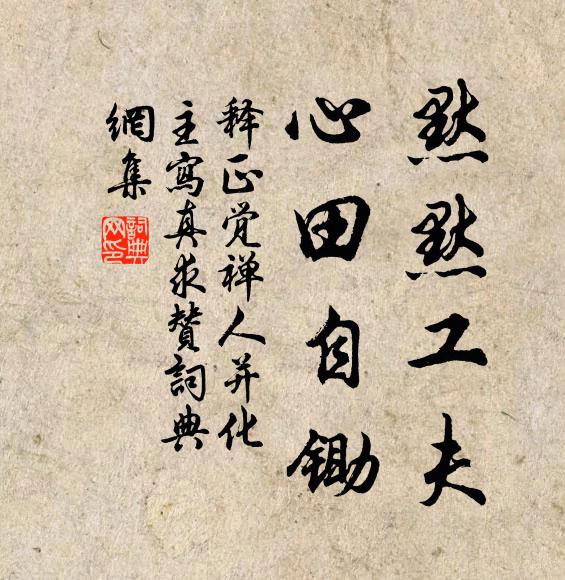 默默工夫
心田自鋤
释正觉禅人并化
主寫真求賛詞典
網集
詞典網印